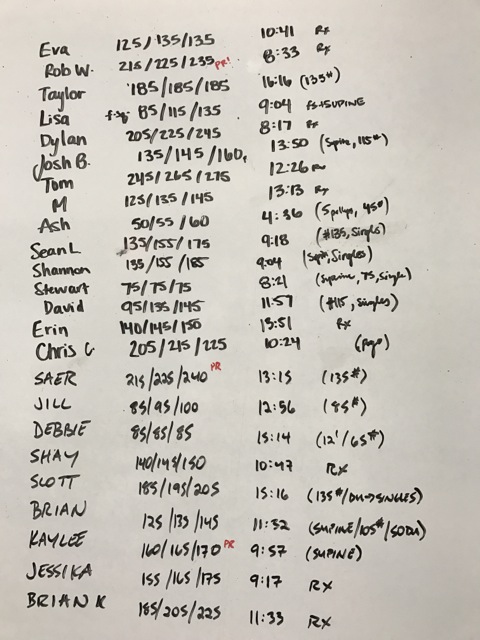 Eva 125/135/135 10:41 Rx
Rob W. 215/225/235 PR! 8:33 Rx
Taylor 185/185/185 16:16 (135#)
Lisa 85/115/135 9:04 FS+SUPINE
Dylan 205/225/245 8:17 Rx
Josh B. 135/145/160 13:50 (Supine, 115#)
Tom 245/265/275 12:26 Rx
M 125/135/145 13:13 Rx
Ash 50/55/60 4:36 (5 pullups, 45#)
Sean L 135/155/175 9:18 (#135, Singles)
Shannon 135/155/185 9:04 (Supine, Singles)
Stewart 75/75/75 8:21 (Supine, 75, Single)
David 95/135/145 11:57 (#115, Singles)
Erin 140/145/150 13:51 Rx
Chris C 205/215/225 10:24
SAER 215/225/240 PR 13:15 (135#)
JILL 85/95/100 12:56 (85#)
DEBBIE 85/85/85 15:14 (12'/65#)
SHAY 140/145/150 10:47 RX
SCOTT 185/195/205 15:16 (135#/DU→SINGLES)
BRIAN 125/135/145 11:32 (SUPINE/105#/SODA)
KAYLEE 160/165/170 PR 9:57 (SUPINE)
JESSIKA 155/165/175 9:17 RX
BRIAN K 185/205/225 11:33 RX